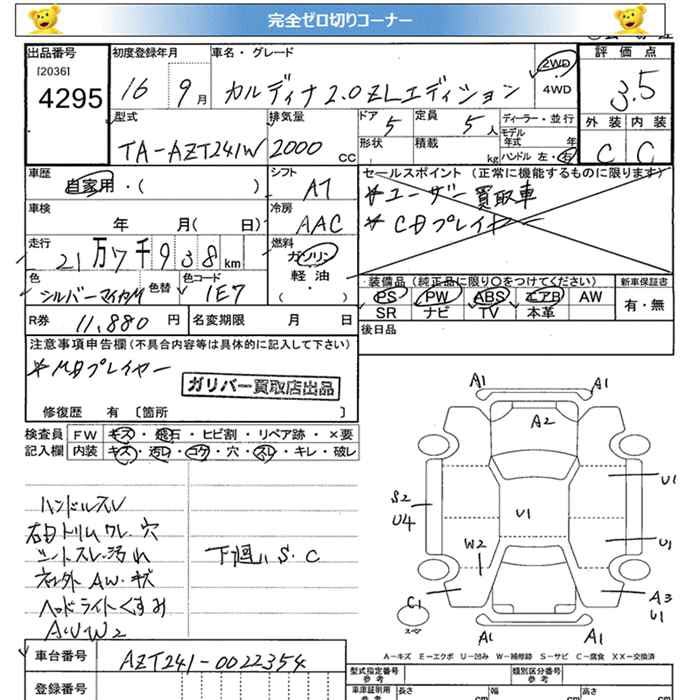 完全ゼロ切りコーナー
出品番号
[2036]
4295
初度登録年月
16 9月
車名・グレード
カルディナ2.0ZLエディション
2WD
4WD
評価点
3.5
外装 内装
C C
型式
TA-AZT241W
排気量
2000 cc
ドア 5
形状
定員 5人
積載 kg
ディーラー・並行
モデル年式 年
ハンドル 左・右
車歴
自家用・( )
シフト
AT
セールスポイント(正常に機能するものに限ります)
*ユーザー買取車
*CDプレイヤー
車検
年 月(日)
冷房
AAC
走行
21万7千938km
燃料
ガソリン
軽油
( )
色
シルバーマイカM
色替
色コード
1E7
装備品(純正品に限り○をつけてください)
PS PW ABS エアB AW
SR ナビ TV 本革
新車保証書
有・無
R券 11,880円
名変期限 月 日
後日品
注意事項申告欄(不具合内容等は具体的に記入して下さい)
*MDプレイヤー
ガリバー買取店出品
修復歴 有 〔箇所 〕
検査員記入欄
FW キズ・飛石・ヒビ割・リペア跡・×要
内装 キズ・汚レ・コゲ・穴・スレ・キレ・破レ
ハンドルスレ
右Dトリムワレ、穴
シートスレ、汚れ
AW・キズ
ヘッドライトくすみ
AUW2
下廻りS.C
A1 A1
A2
S2
U4
U1
U1
U1
W2
C1
スペヤー
A3
U1
A1 A1
A−キズ E−エクボ U−凹み W−補修跡 S−サビ C−腐食 XX−交換済
車台番号
AZT241-0022354
登録番号
型式指定番号
参考
類別区分番号
参考
車庫証明用
参考
長さ cm
幅 cm
高さ cm